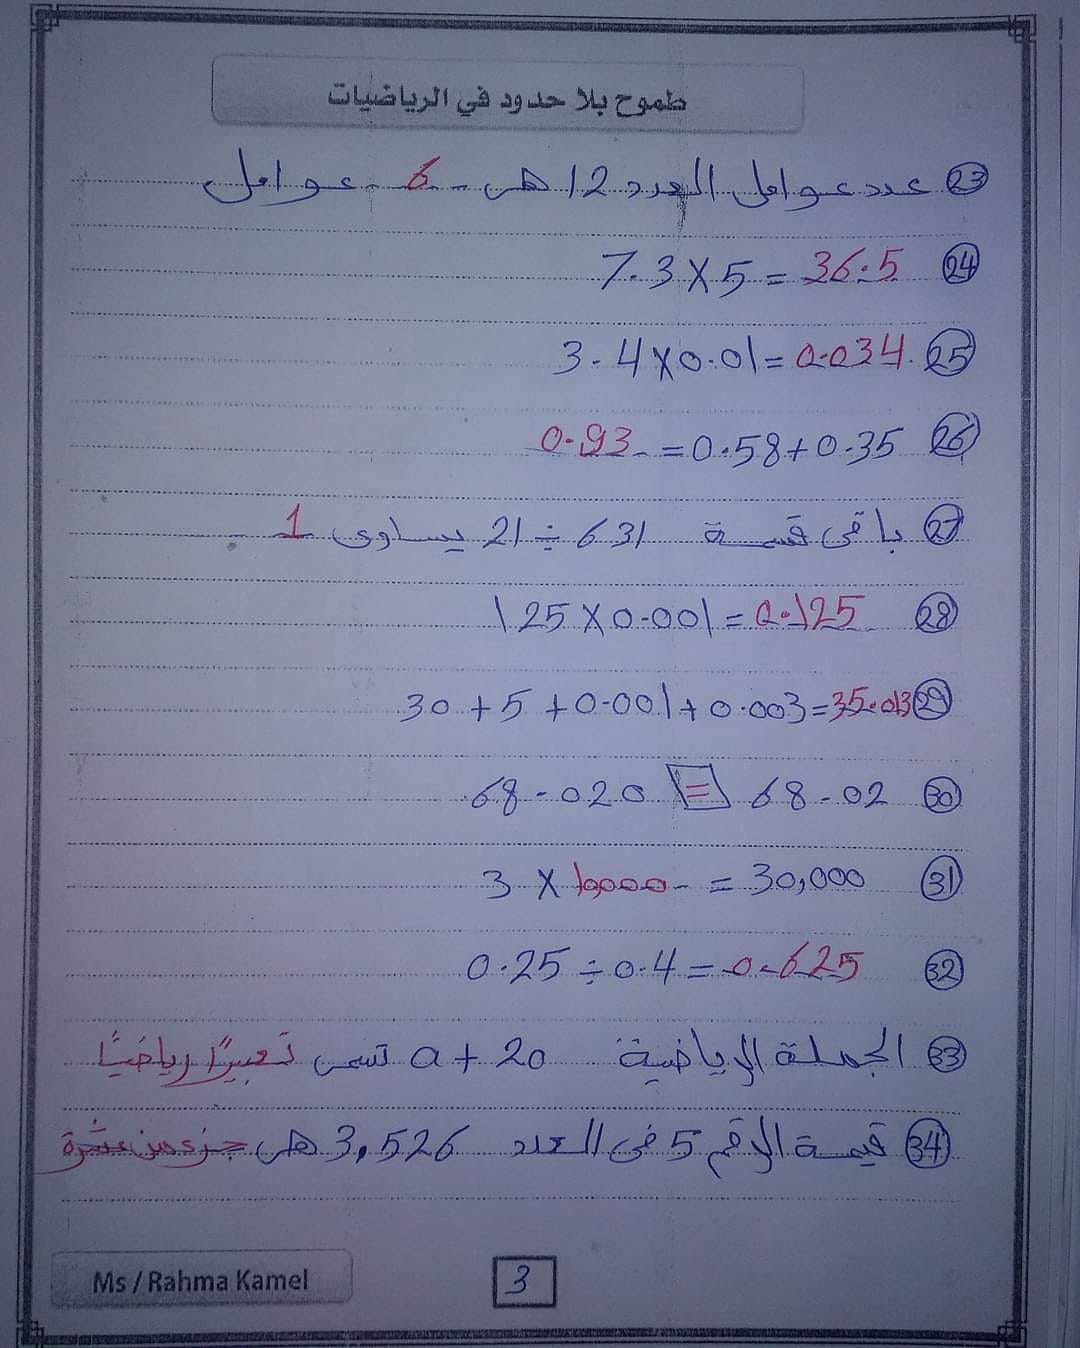 طموح بلا حدود في الرياضيات
23 عدد عوامل العدد 12 هى 6 عوامل
24 7.3 × 5 = 36.5
25 3.4 × 0.01 = 0.034
26 0.93 = 0.58 + 0.35
27 باقى قسمة 631 ÷ 21 يساوى 1
28 125 × 0.001 = 0.125
29 30 + 5 + 0.001 + 0.003 = 35.013
30 68.020 = 68.02
31 3 × 10,000 = 30,000
32 0.25 ÷ 0.4 = 0.625
33 الجملة الرياضية a + 20 تسمى تعبيرًا رياضيًا
34 قيمة الرقم 5 فى العدد 3,526 هى جزء من عشرة
Ms / Rahma Kamel
3